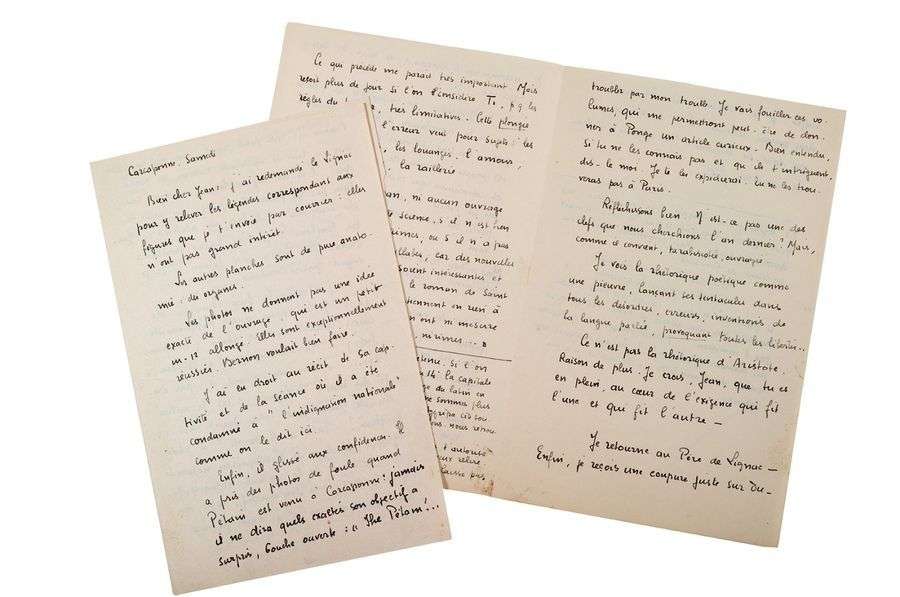 Carcassonne. Samedi
Bien cher Jean : j'ai redemandé le Lignac
pour y relever les légendes correspondant aux
figures que je t'envoie par courrier : elles
n'ont pas grand intérêt.
Les autres planches sont de pure anato-
mie : des organes.
Les photos ne donnent pas une idée
exacte de l'ouvrage, qui est un petit
in-12 allongé. Elles sont exceptionnellement
réussies. Bernon voulait bien faire.
J'ai eu droit au récit de sa cap-
tivité et de la séance où il a été
condamné à "l'indignation nationale"
comme on le dit ici.
Enfin, il glisse aux confidences. Il
a pris des photos de foule quand
Pétain est venu à Carcassonne : jamais
il ne dira quels exaltés son objectif a
surpris, bouche ouverte : "The Pétain!...
Ce qui précède me paraît très important. Mais
reçoit plus de jour si l'on considère
règles du très limitatives. Cette plongée
l'erreur veut pour sujets : les
les louanges, l'amour,
la raillerie
ni aucun ouvrage
de science, s'il n'est bien
ou s'il n'a pas
car des nouvelles
soient intéressantes et
le roman de Saint
tiennent en rien à
ont ni mesure
ni rimes... »
Si l'on
la capitale
du latin en
sommes plus
nous
laisse pas
troublé par mon trouble. Je vais fouiller ces vo-
lumes, qui me permettront peut-être de don-
ner à Ponge un article curieux. Bien entendu,
si tu ne les connais pas et qu'ils t'intriguent,
dis-le moi. Je te les expédierai. Tu ne les trou-
veras pas à Paris.
Réfléchissons bien. N'est-ce pas une des
clefs que nous cherchions l'an dernier? Mais,
comme il convient, tarabiscotée, ouvragée.
Je vois la rhétorique poétique comme
une pieuvre, lançant ses tentacules dans
tous les désordres, erreurs, inventions de
la langue parlée, provoquant toutes les libertés..
Ce n'est pas la rhétorique d'Aristote.
Raison de plus. Je crois, Jean, que tu es
en plein, au cœur de l'exigence qui fit
l'une et qui fit l'autre —
Je retourne au Père de Lignac —
Enfin, je reçois une coupure Juste sur Du-